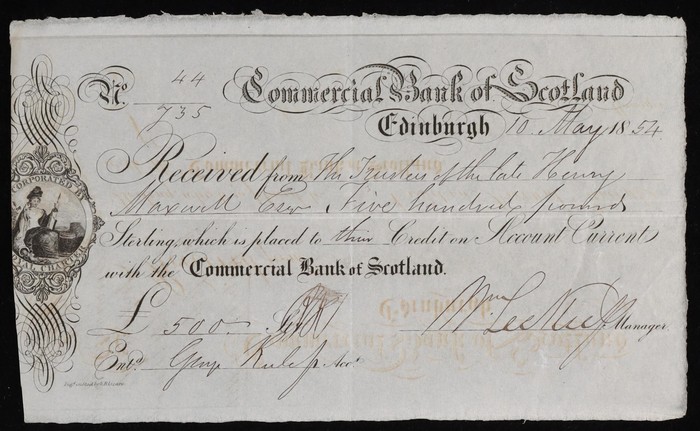 No. 44
735
Commercial Bank of Scotland
Edinburgh 10 May 1854
Received from The Trustees of the late Henry
Maxwell Esqr Five hundred pounds
Sterling, which is placed to their Credit on Account Current
with the Commercial Bank of Scotland.
£ 500 Ster
Manager
Entd. George Acct
INCORPORATED